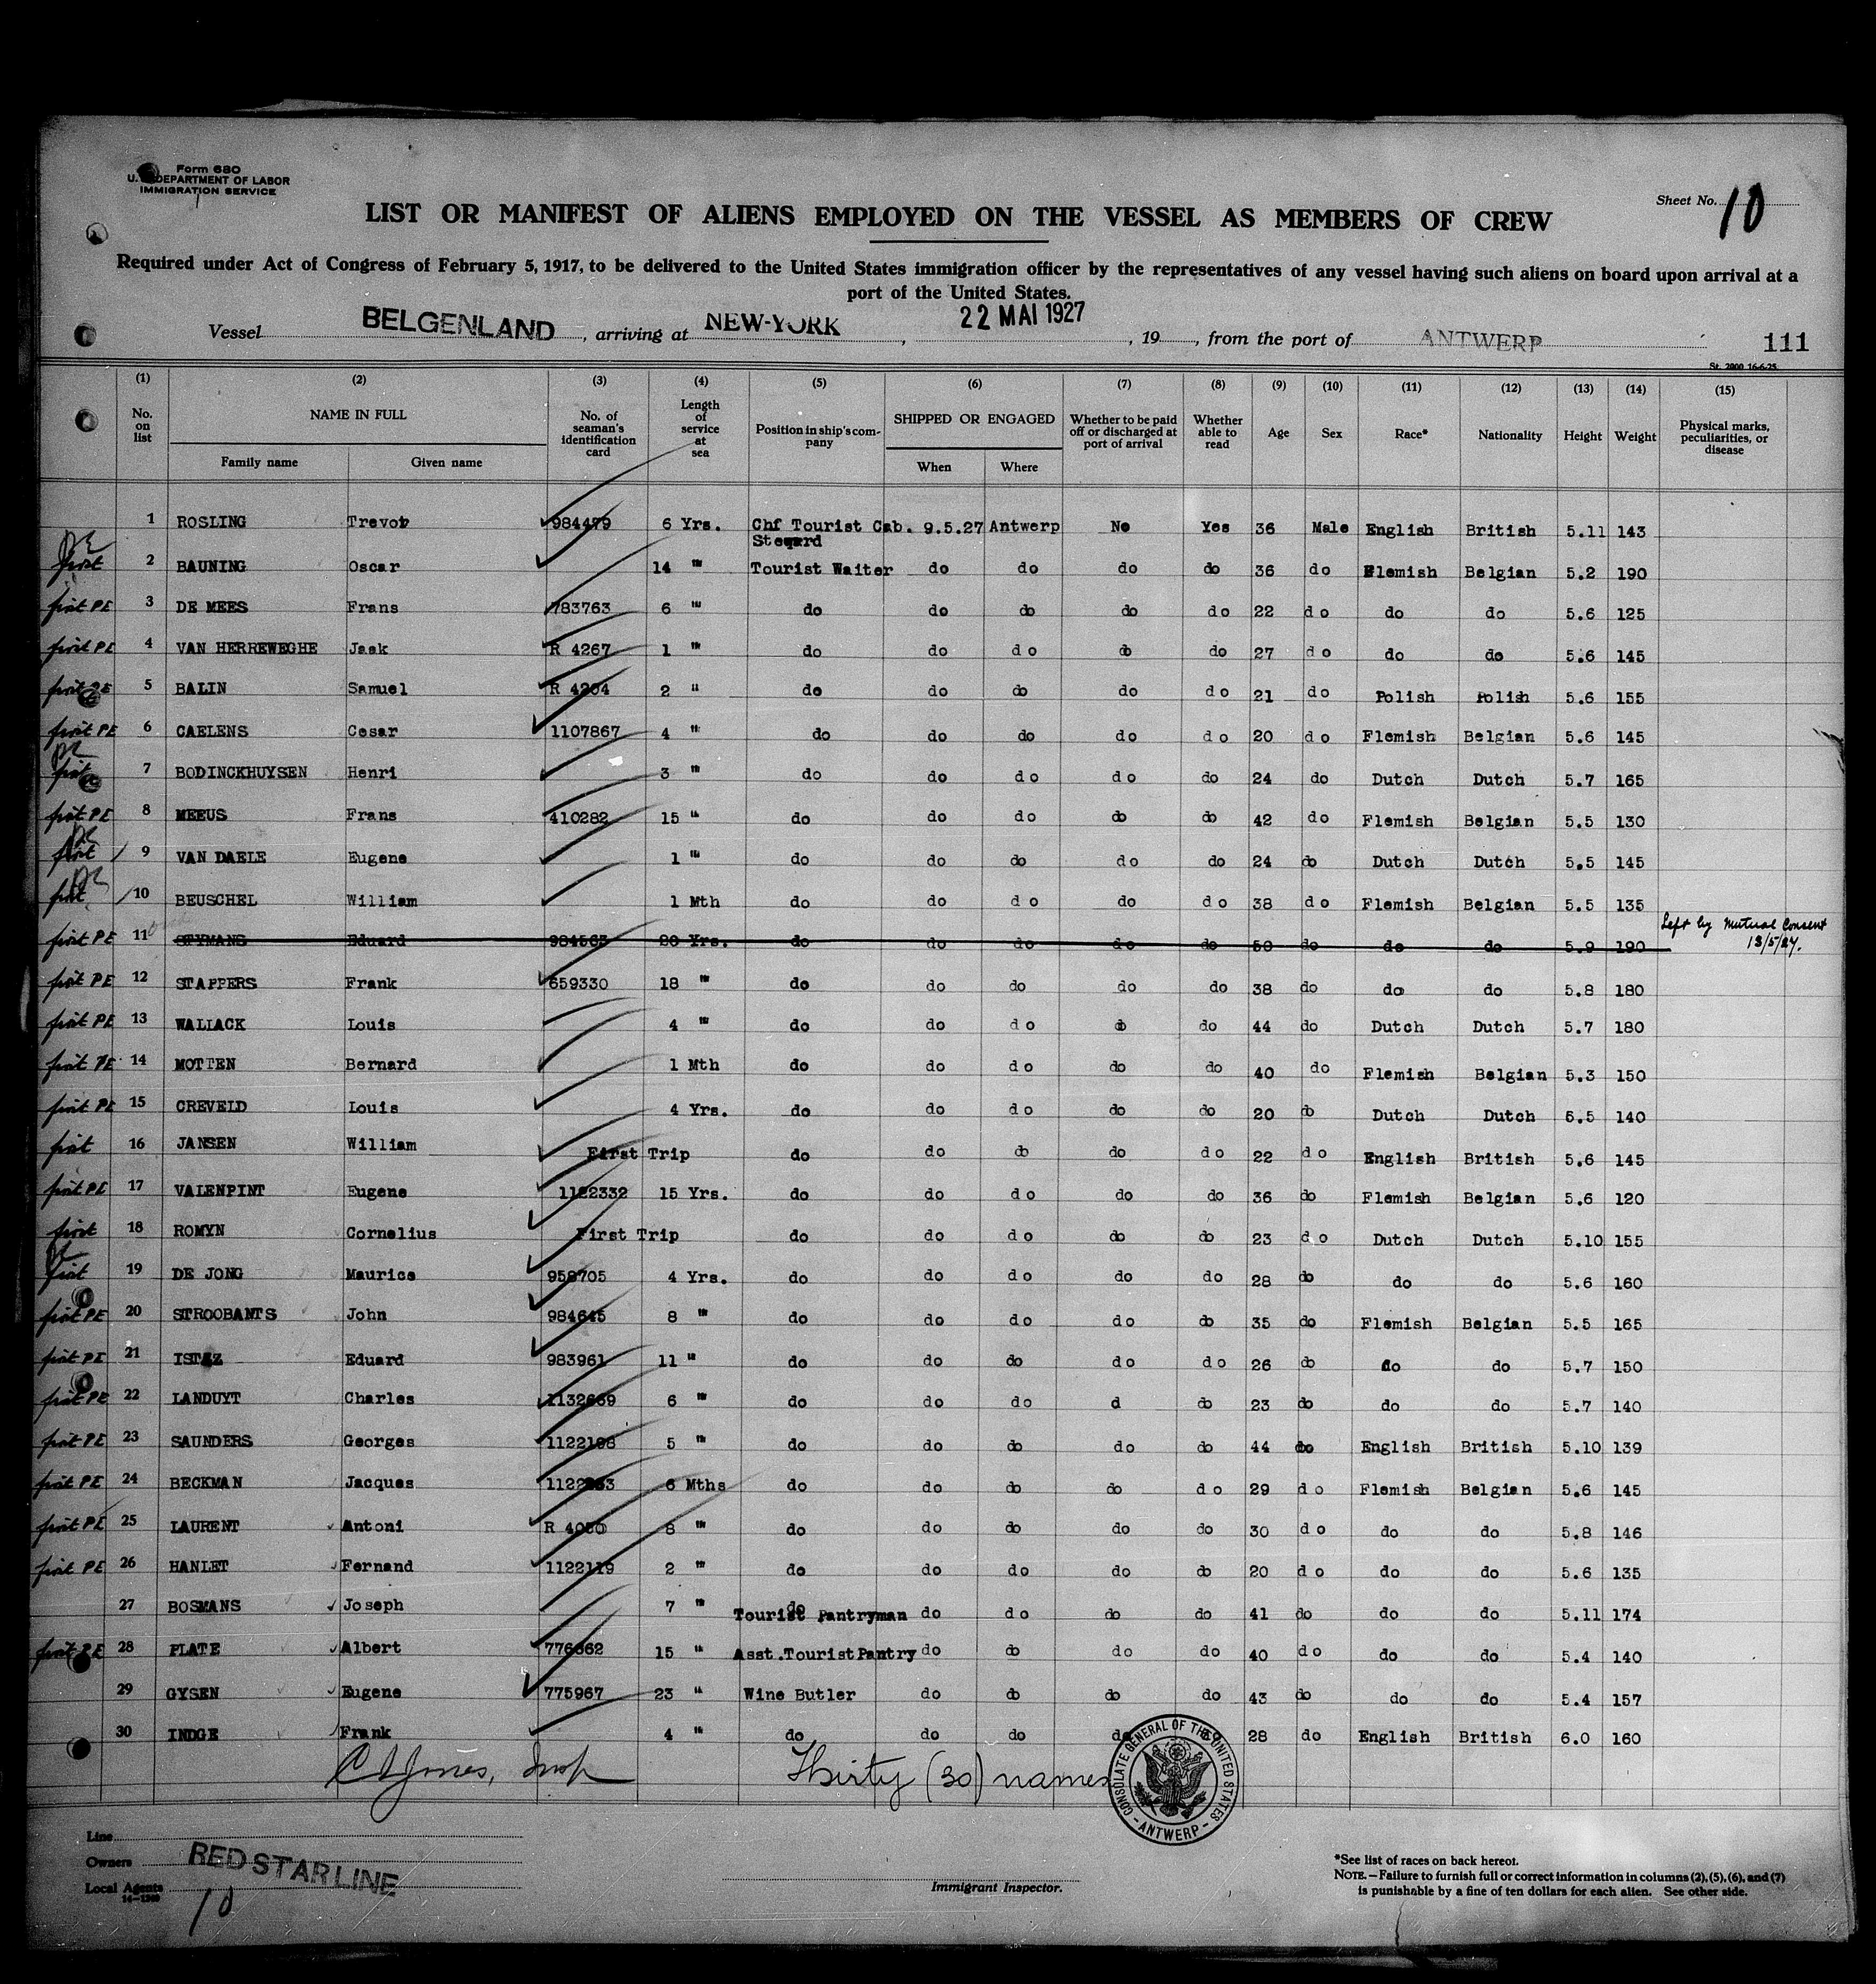 Form 680
U. S. DEPARTMENT OF LABOR
IMMIGRATION SERVICE
Sheet No. 10
LIST OR MANIFEST OF ALIENS EMPLOYED ON THE VESSEL AS MEMBERS OF CREW
Required under Act of Congress of February 5, 1917, to be delivered to the United States immigration officer by the representatives of any vessel having such aliens on board upon arrival at a
port of the United States.
Vessel BELGENLAND, arriving at NEW-YORK, 22 MAI 1927, 19, from the port of ANTWERP 111
St. 2000 16-6-25.
(1) (2) (3) (4) (5) (6) (7) (8) (9) (10) (11) (12) (13) (14) (15)
No. on list NAME IN FULL Family name Given name No. of seaman's identification card Length of service at sea Position in ship's company SHIPPED OR ENGAGED When Where Whether to be paid off or discharged at port of arrival Whether able to read Age Sex Race* Nationality Height Weight Physical marks, peculiarities, or disease
1 ROSLING Trevor 984479 6 Yrs. Chf Tourist Cab. Steward 9.5.27 Antwerp No Yes 36 Male English British 5.11 143
first PE 2 BAUNING Oscar 14 " Tourist Waiter do do do do 36 do Flemish Belgian 5.2 190
first PE 3 DE MEES Frans 783763 6 " do do do do do 22 do do do 5.6 125
first PE 4 VAN HERREWEGHE Jaak R 4267 1 " do do do do do 27 do do do 5.6 145
first PE 5 BALIN Samuel R 4204 2 " do do do do do 21 do Polish Polish 5.6 155
first PE 6 CAELENS Cesar 1107867 4 " do do do do do 20 do Flemish Belgian 5.6 145
first PE 7 BODINCKHUYSEN Henri 3 " do do do do do 24 do Dutch Dutch 5.7 165
first PE 8 MEEUS Frans 410282 15 " do do do do do 42 do Flemish Belgian 5.5 130
first PE 9 VAN DAELE Eugene 1 " do do do do do 24 do Dutch Dutch 5.5 145
first PE 10 BEUSCHEL William 1 Mth do do do do do 38 do Flemish Belgian 5.5 135
first PE 11 STYMANS Eduard 984563 20 Yrs. do do do do do 50 do do do 5.9 190 Left by Mutual Consent 13/5/27.
first PE 12 STAPPERS Frank 659330 18 " do do do do do 38 do do do 5.8 180
first PE 13 WALLACK Louis 4 " do do do do do 44 do Dutch Dutch 5.7 180
first PE 14 MOTTEN Bernard 1 Mth do do do do do 40 do Flemish Belgian 5.3 150
first PE 15 CREVELD Louis 4 Yrs. do do do do do 20 do Dutch Dutch 6.5 140
first 16 JANSEN William First Trip do do do do do 22 do English British 5.6 145
first PE 17 VALENPINT Eugene 1122332 15 Yrs. do do do do do 36 do Flemish Belgian 5.6 120
first 18 ROMYN Cornelius First Trip do do do do do 23 do Dutch Dutch 5.10 155
first PE 19 DE JONG Maurice 958705 4 Yrs. do do do do do 28 do do do 5.6 160
first PE 20 STROOBANTS John 984645 8 " do do do do do 35 do Flemish Belgian 5.5 165
first PE 21 ISTAZ Eduard 983961 11 " do do do do do 26 do do do 5.7 150
first PE 22 LANDUYT Charles 1132669 6 " do do do d do 23 do do do 5.7 140
first PE 23 SAUNDERS Georges 1122108 5 " do do do do do 44 do English British 5.10 139
first PE 24 BECKMAN Jacques 6 Mths do do do do do 29 do Flemish Belgian 5.6 145
first PE 25 LAURENT Antoni R 4050 8 " do do do do do 30 do do do 5.8 146
first PE 26 HANLET Fernand 1122119 2 " do do do do do 20 do do do 5.6 135
27 BOSMANS Joseph 7 " do Tourist Pantryman do do do do 41 do do do 5.11 174
first PE 28 PLATE Albert 776662 15 " Asst.Tourist Pantry do do do do 40 do do do 5.4 140
29 GYSEN Eugene 775967 23 " Wine Butler do do do do 43 do do do 5.4 157
30 INDGE Frank 4 " do do do do do 28 do English British 6.0 160
Jones, Insp Thirty (30) names
CONSULATE GENERAL OF THE UNITED STATES - ANTWERP -
Line
Owners RED STAR LINE
Local Agents
14-1269
10
Immigrant Inspector.
*See list of races on back hereof.
NOTE.—Failure to furnish full or correct information in columns (2), (5), (6), and (7)
is punishable by a fine of ten dollars for each alien. See other side.